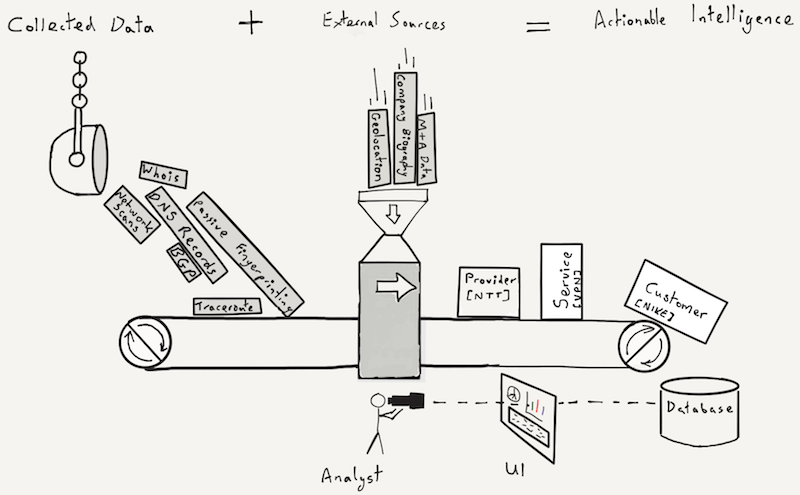 Collected Data + External Sources = Actionable Intelligence
Geolocation
Company Biography
M+A Data
Whois
Network
Scans
DNS Records
Passive Fingerprinting
BGP
Traceroute
Provider
[NTT]
Service
[VPN]
Customer
[NIKE]
Analyst
UI
Database